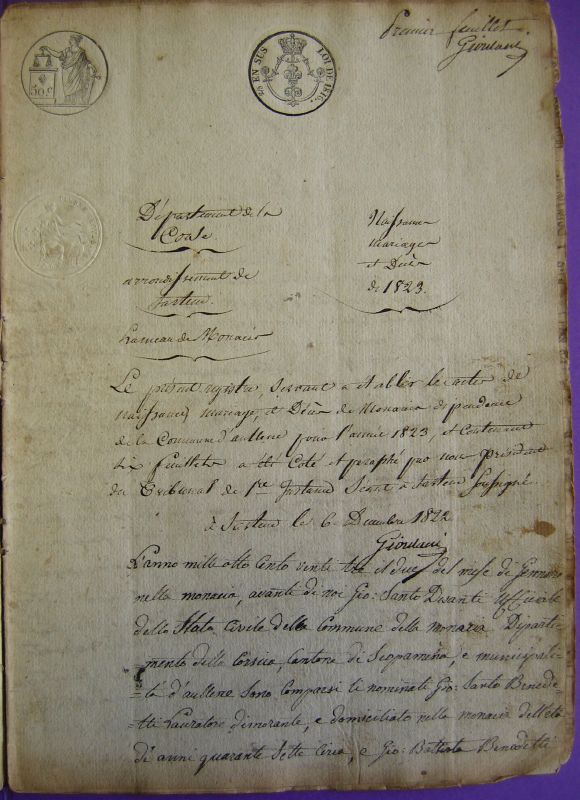 Premier feuillet
Giordani
50 c.
EN SUS LOI DE 1816.
Département de la
Corse
arrondissement de
Sartene.
hameau de Monacia
Naissances
mariages
et Décès
de 1823.
Le présent registre, servant a etablir les actes de
naissances, mariages, et Décès de Monacia dependence
de la Commune d'aullene pour l'année 1823, et contenant
six feuillets a été Coté et paraphé par nous président
du Tribunal de 1re Instance Seant à Sartene soussigné
à Sartene le 6 Decembre 1822
Giordani
L'anno mille otto cento vente tre il due del mese di Gennaro
nella monacia, avante di noi Gio: Santo Uffiziale
dello Stato Civile della Commune della monacia Diparti-
mento della Corsica, Cantone di Scopamena, e municipali-
=tà d'aullene sono comparsi li nominati Gio: Santo Benede-
=tti Lavoratore dimorante, e domiciliato nella monacia dell'età
di anni quaranta Sette Circa, e Gio: Battista Benedetti